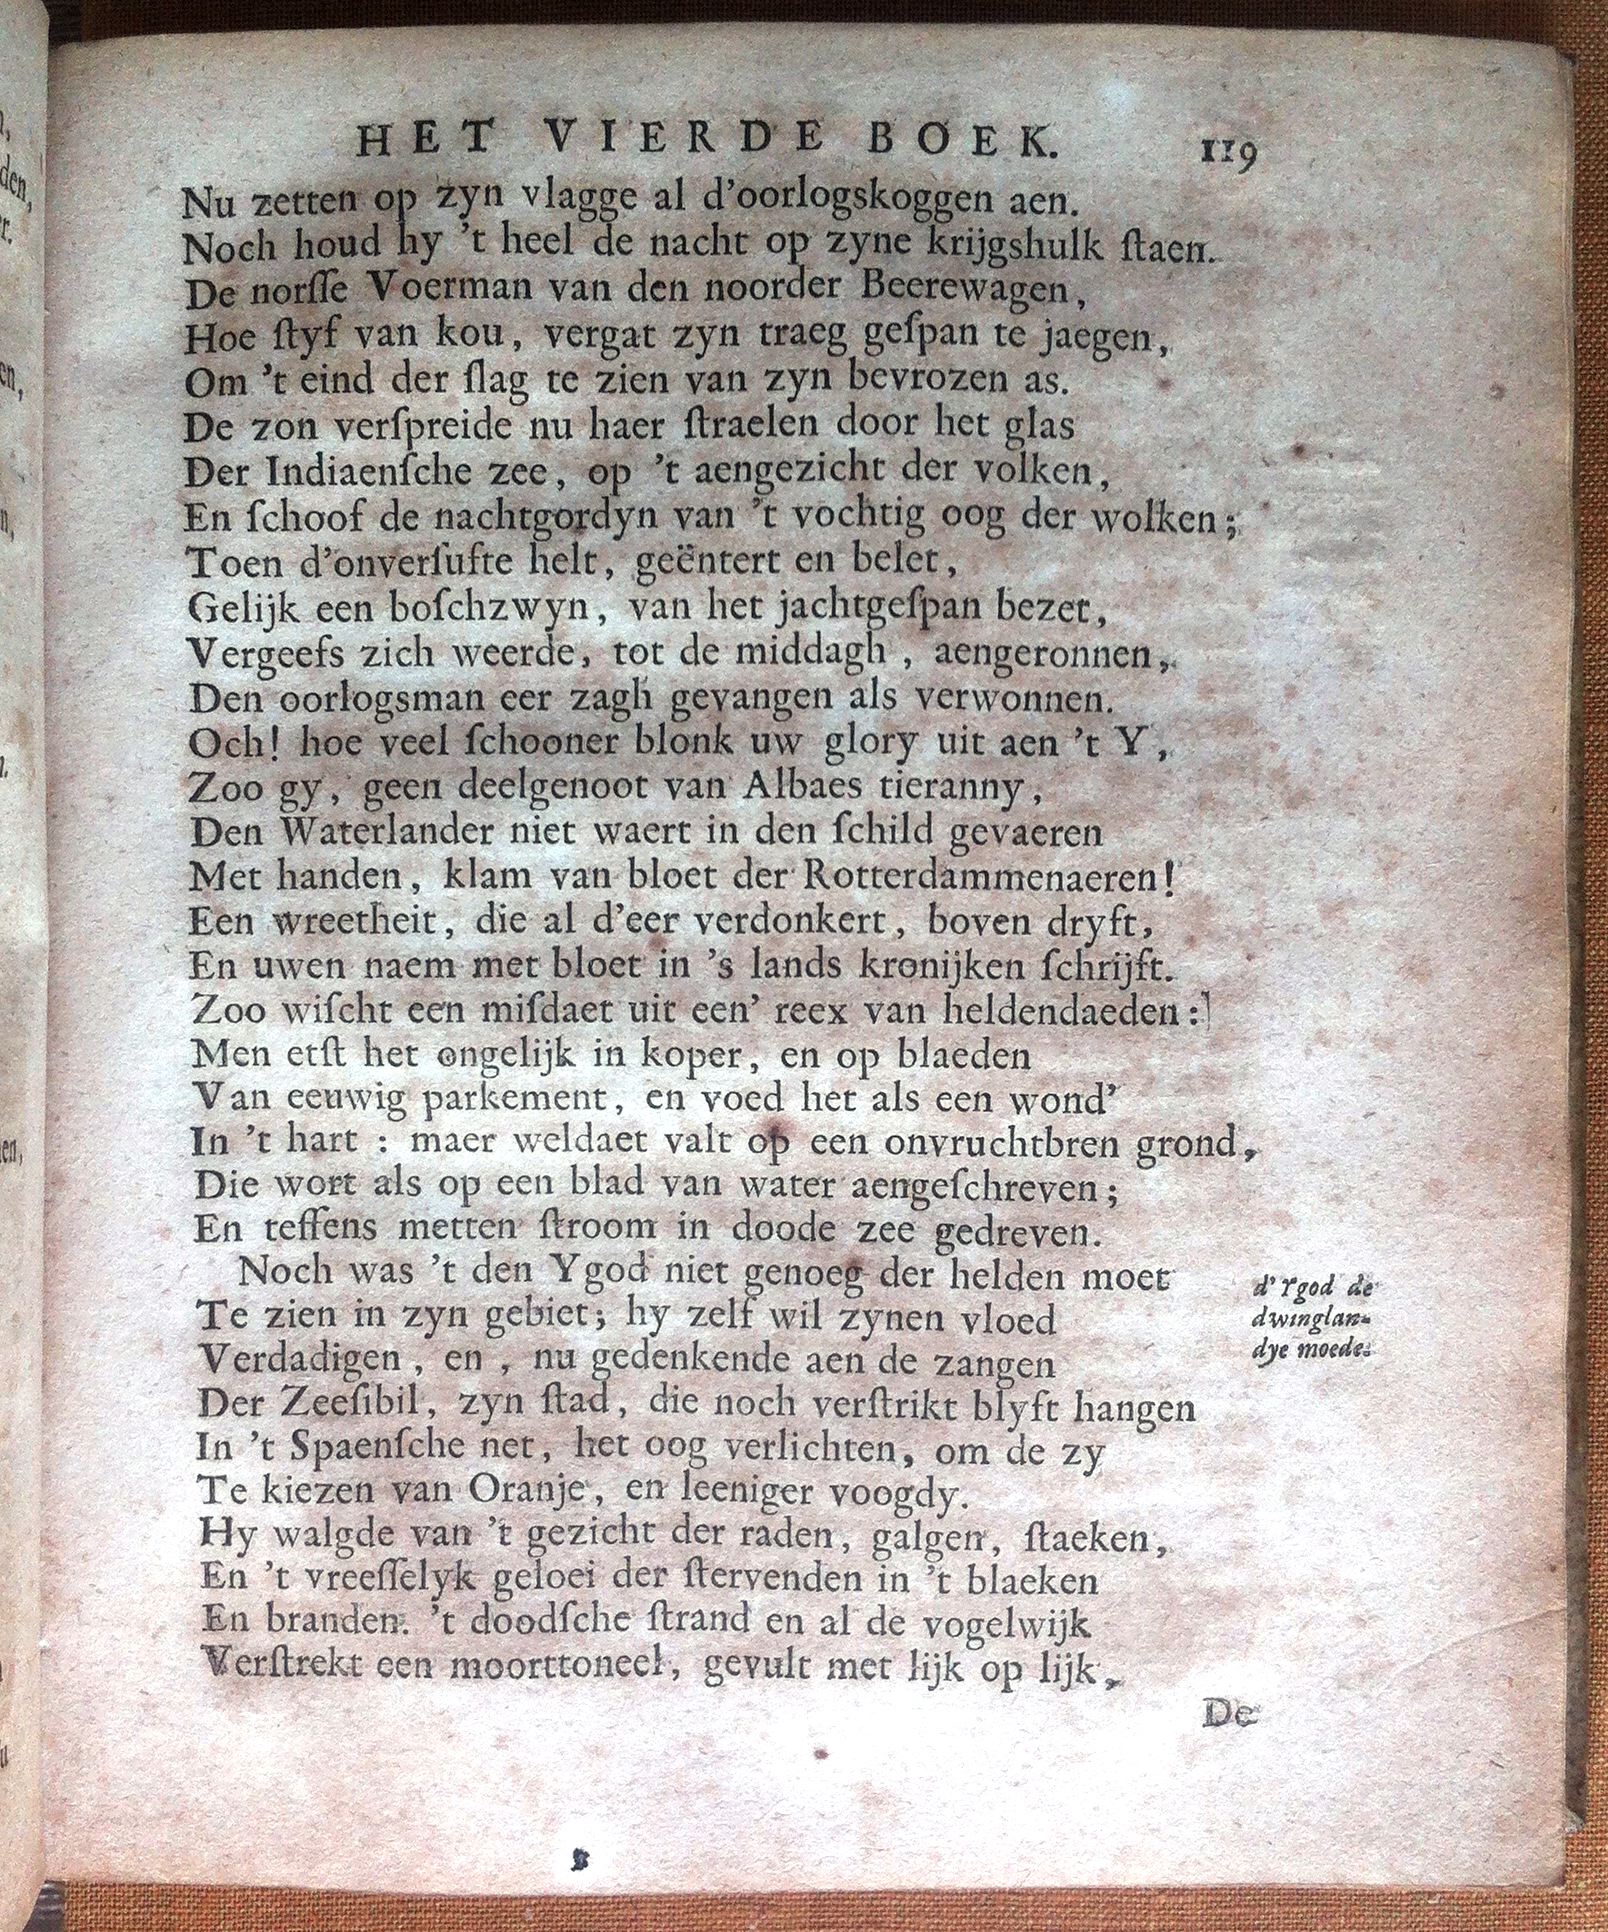 HET VIERDE BOEK. 119
Nu zetten op zyn vlagge al d'oorlogskoggen aen.
Noch houd hy 't heel de nacht op zyne krijgshulk ſtaen.
De norſſe Voerman van den noorder Beerewagen,
Hoe ſtyf van kou, vergat zyn traeg geſpan te jaegen,
Om 't eind der ſlag te zien van zyn bevrozen as.
De zon verſpreide nu haer ſtraelen door het glas
Der Indiaenſche zee, op 't aengezicht der volken,
En ſchoof de nachtgordyn van 't vochtig oog der wolken;
Toen d'onverſufte helt, geëntert en belet,
Gelijk een boſchzwyn, van het jachtgeſpan bezet,
Vergeefs zich weerde, tot de middagh, aengeronnen,
Den oorlogsman eer zagh gevangen als verwonnen.
Och! hoe veel ſchooner blonk uw glory uit aen 't Y,
Zoo gy, geen deelgenoot van Albaes tieranny,
Den Waterlander niet waert in den ſchild gevaeren
Met handen, klam van bloet der Rotterdammenaeren!
Een wreetheit, die al d'eer verdonkert, boven dryft,
En uwen naem met bloet in 's lands kronijken ſchrijft.
Zoo wiſcht een miſdaet uit een' reex van heldendaeden:
Men etſt het ongelijk in koper, en op blaeden
Van eeuwig parkement, en voed het als een wond'
In 't hart : maer weldaet valt op een onvruchtbren grond,
Die wort als op een blad van water aengeſchreven;
En teffens metten ſtroom in doode zee gedreven.
Noch was 't den Ygod niet genoeg der helden moet
Te zien in zyn gebiet; hy zelf wil zynen vloed
Verdadigen, en, nu gedenkende aen de zangen
Der Zeeſibil, zyn ſtad, die noch verſtrikt blyft hangen
In 't Spaenſche net, het oog verlichten, om de zy
Te kiezen van Oranje, en leeniger voogdy.
Hy walgde van 't gezicht der raden, galgen, ſtaeken,
En 't vreeſſelyk geloei der ſtervenden in 't blaeken
En branden. 't doodſche ſtrand en al de vogelwijk
Verſtrekt een moorttoneel, gevult met lijk op lijk,
d'Ygod de
dwinglan-
dye moede.
De